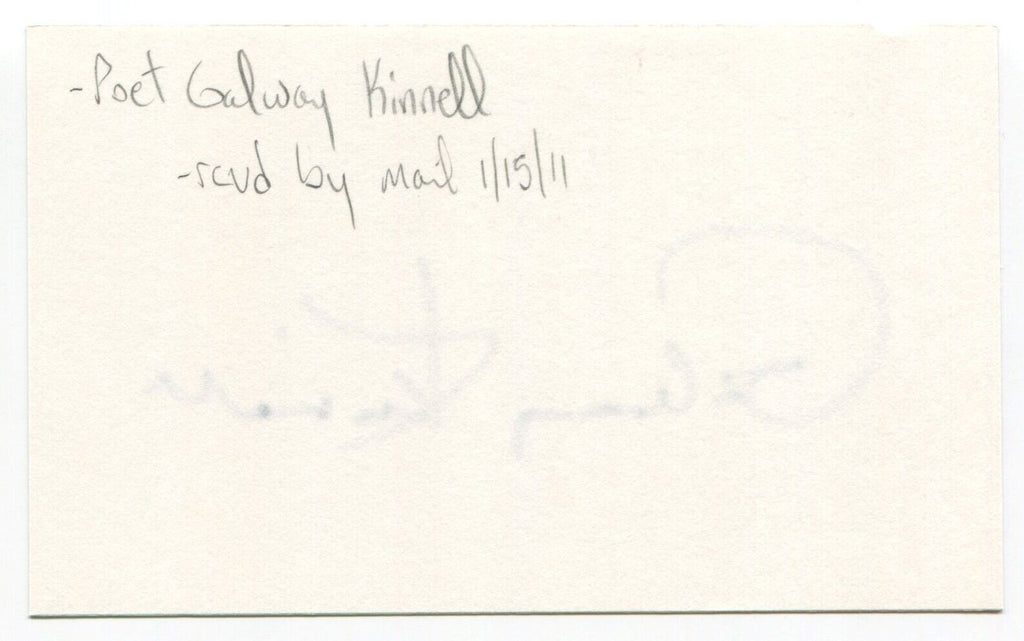 -Poet Galway Kinnell
-rcvd by mail 1/15/11